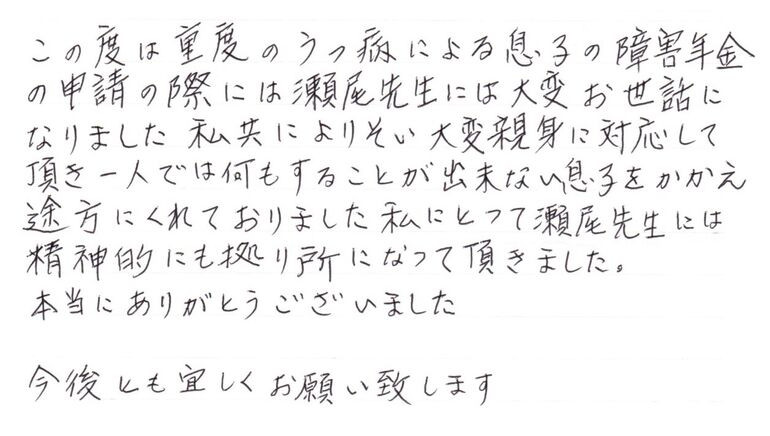 この度は重度のうつ病による息子の障害年金
の申請の際には瀬尾先生には大変お世話に
なりました 私共によりそい大変親身に対応して
頂き一人では何もすることが出来ない息子をかかえ
途方にくれておりました私にとって瀬尾先生には
精神的にも拠り所になって頂きました。
本当にありがとうございました
今後とも宜しくお願い致します